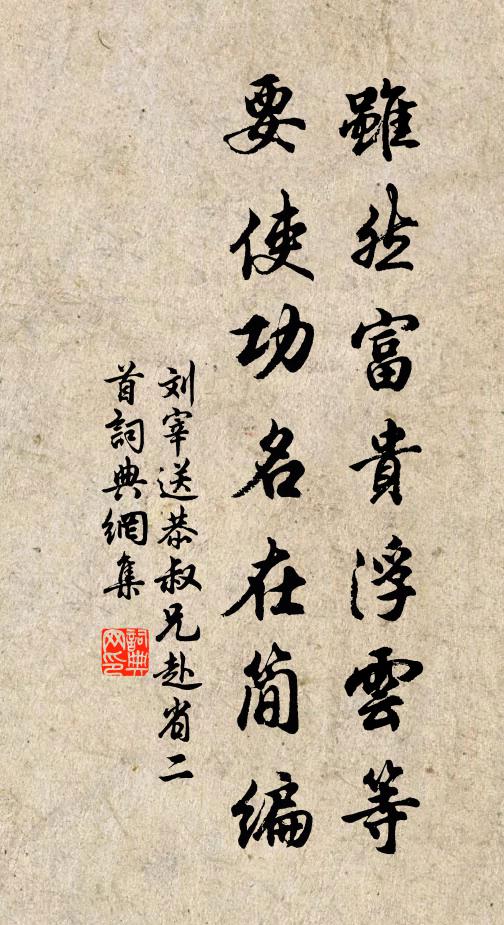 雖然富貴浮雲等
要使功名在简編
刘宰送恭叔兄赴省二
首詞典網集
詞典网印